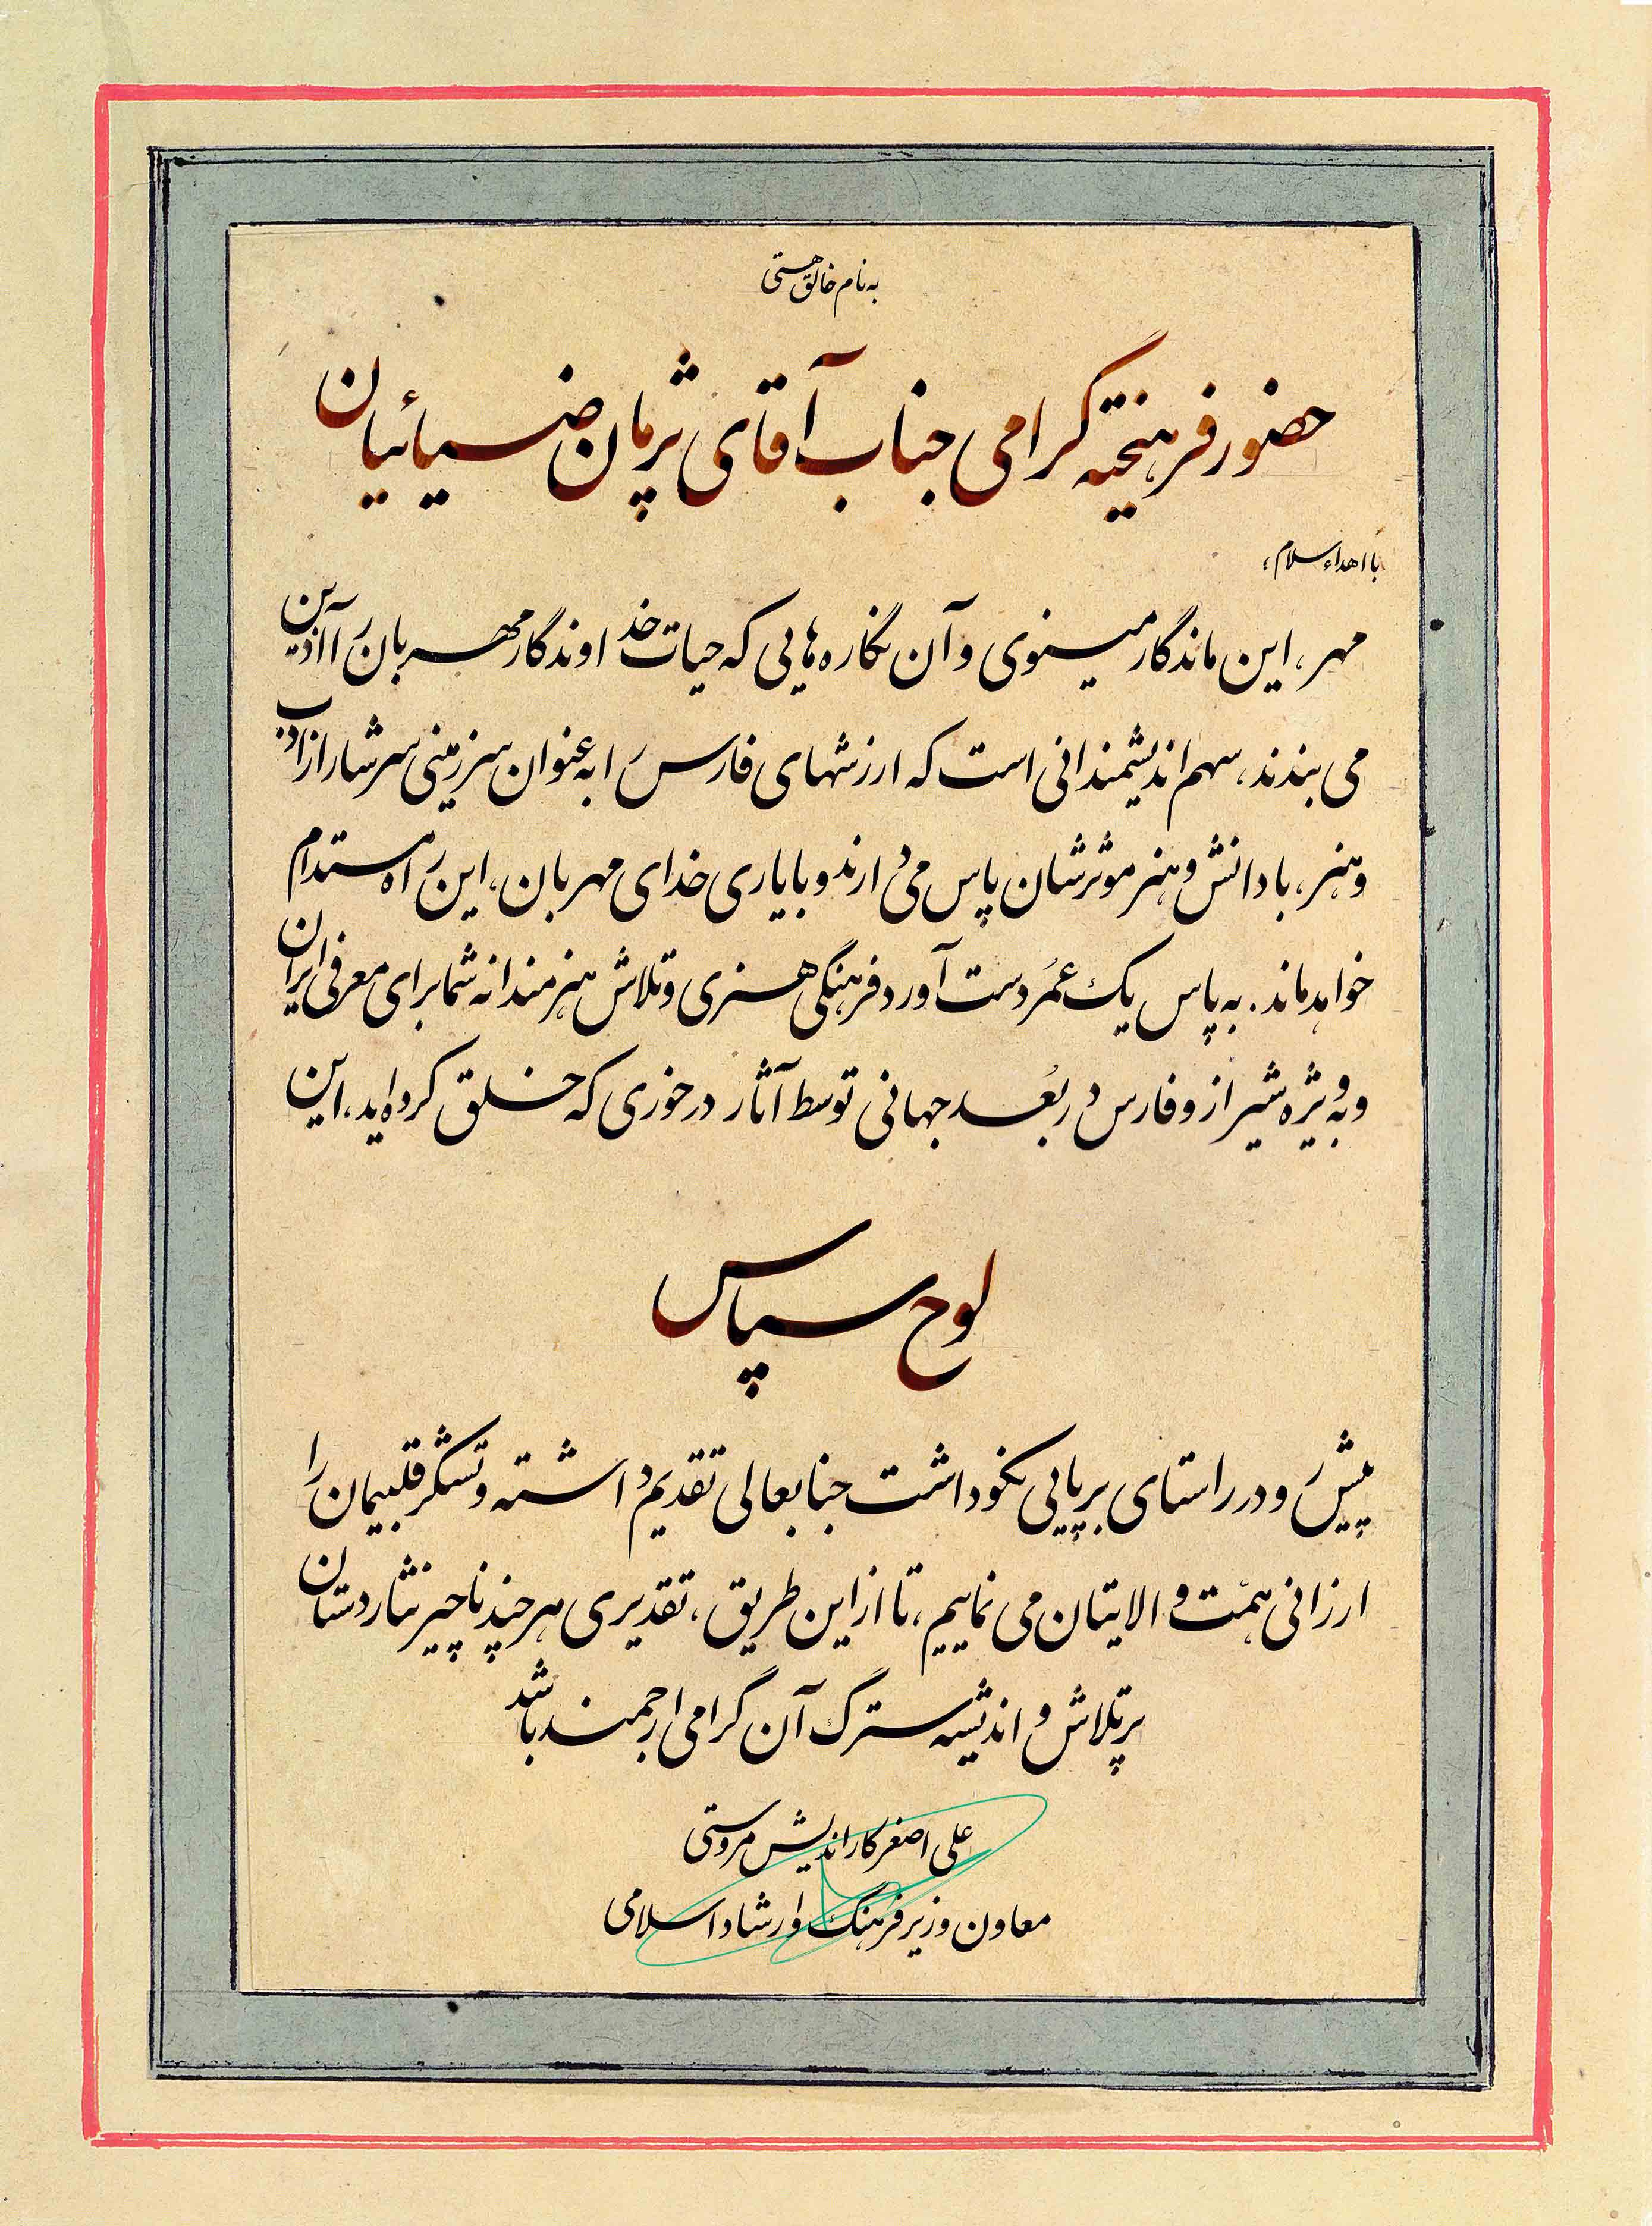 به نام خالق هستی
حضور فرهیخته گرامی جناب آقای پژمان ضیائیان
با اهداء سلام؛
مهر، این ماندگار مینوی و آن نگاره هایی که حیات خداوندگار مهربان را آذین
می بندند، سهم اندیشمندانی است که ارزشهای فارس را به عنوان سرزمینی سرشار از ادب
و هنر، با دانش و هنر موثرشان پاس می دارند و با یاری خدای مهربان، این راه مستدام
خواهد ماند. به پاس یک عُمر دست آورد فرهنگی هنری و تلاش هنرمندانه شما برای معرفی ایران
و به ویژه شیراز و فارس در بُعد جهانی توسط آثار درخوری که خلق کرده اید، این
لوح سپاس
پیش رو در راستای برپایی نکوداشت جنابعالی تقدیم داشته و تشکر قلبیمان را
ارزانی همّت والایتان می نماییم، تا از این طریق، تقدیری هر چند ناچیز نثار دستان
پرتلاش و اندیشه سترگ آن گرامی ارجمند باشد
علی اصغر کاراندیش مروستی
معاون وزیر فرهنگ و ارشاد اسلامی